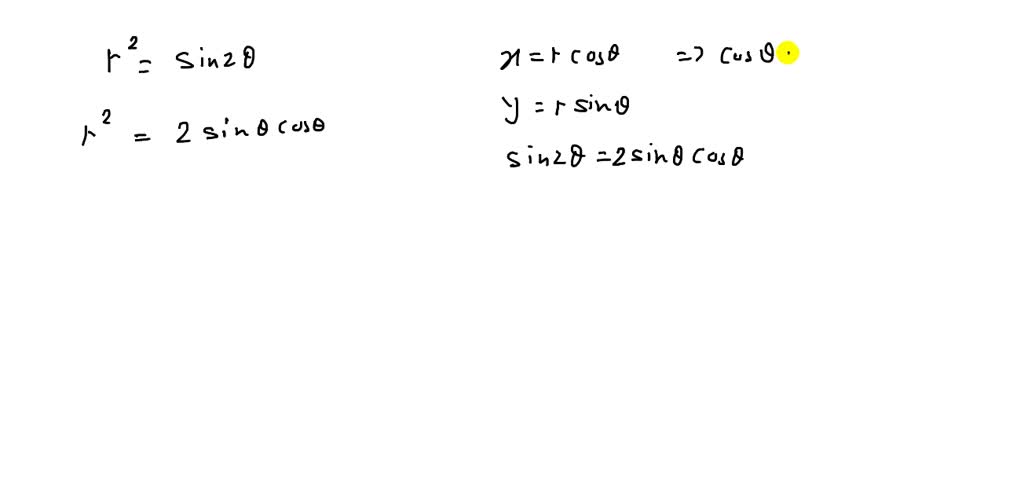 r² = sin2θ
r² = 2 sinθ cosθ
x = r cosθ => cosθ
y = r sinθ
sin2θ = 2 sinθ cosθ